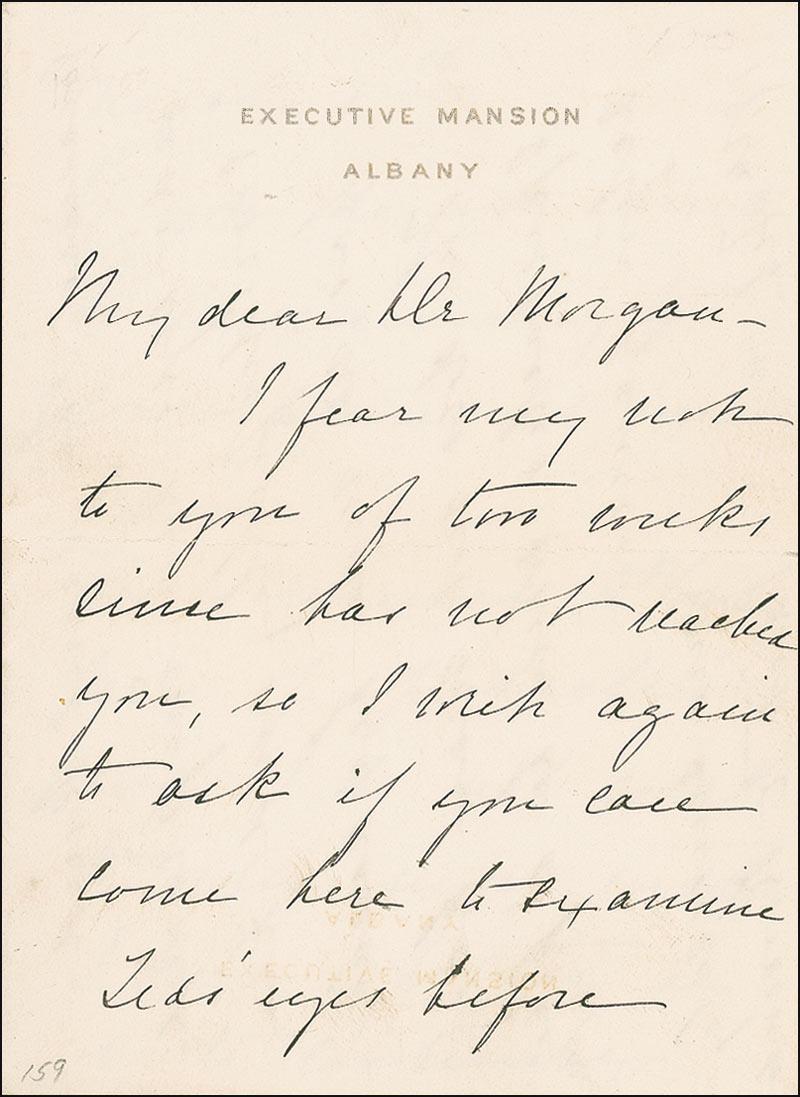 EXECUTIVE MANSION
ALBANY
My dear Dr Morgan –
I fear my note
to you of two weeks
since has not reached
you, so I write again
to ask if you can
come here to examine
Teds' eyes before
159